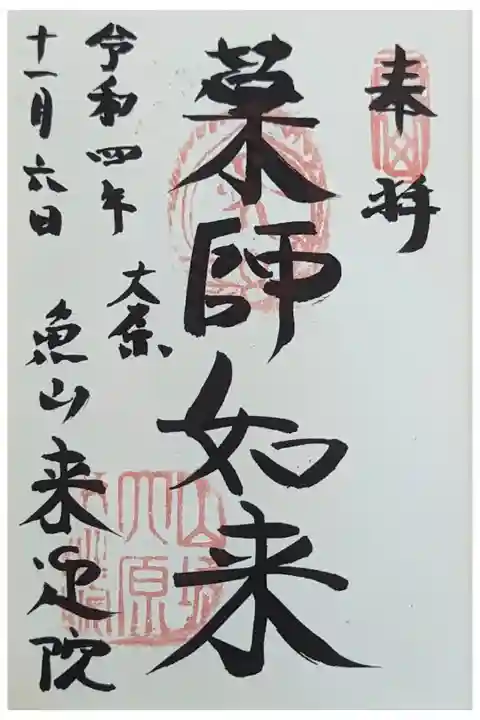 奉拝
薬師如来
大原
魚山来迎院
令和四年
十一月六日
山城
大原